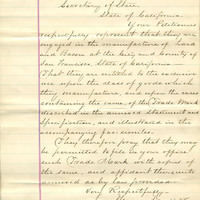 Secretary of State.
State of California.
Your Petitioners
respectfully represent that they are
engaged in the manufacture of Lead
and at the City and County of
San Francisco, State of California —
That they are entitled to the exclusive
use upon the class of goods which
they manufacture, and upon the cases
containing the same, of the Trade Mark
described in the annexed Statement and
Specification, and illustrated in the
accompanying fac-similes.
They therefore pray that they may
be permitted to file in your office
such Trade Mark with copies of
the same, and affidavit thereunto
annexed as by law provided.
Very Respectfully,